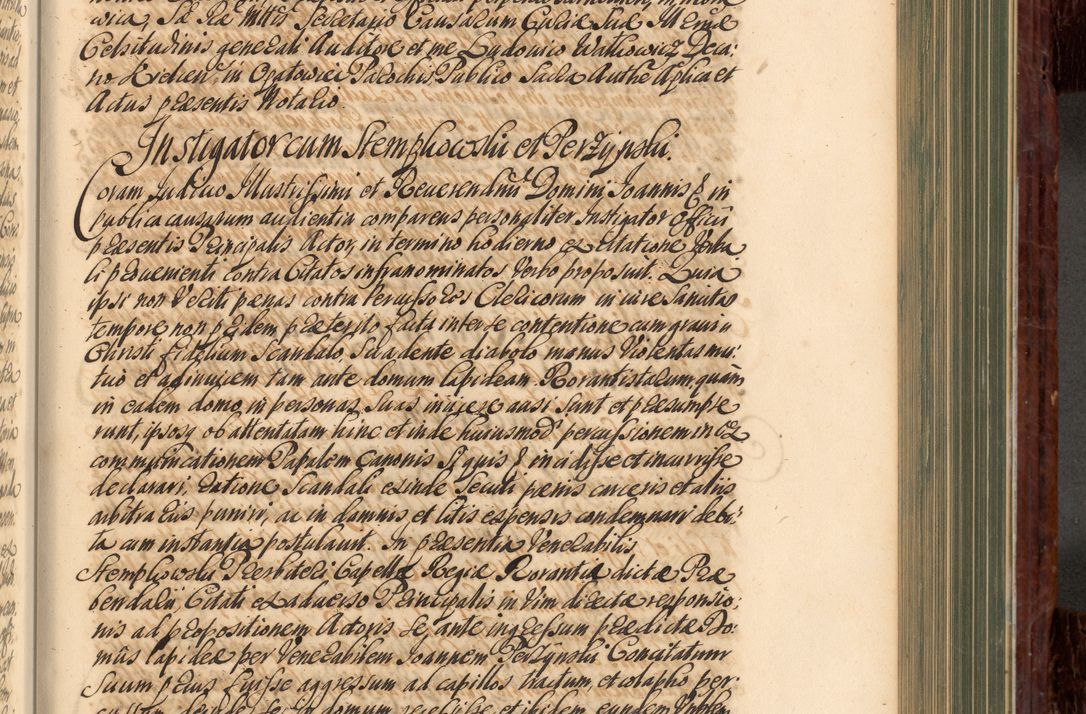 wia, Sae Rae Mttis Secretario Causarum Curiae Suae Ill Emae
Celsitudinis generali Auditore et me Ludovico Watkowicz Deca:
no in Opatowiec Parocho, Publico Sacra Authe Aplica et
Actus praesentis Notario.
Instigator cum Stempkowski et Perzynski.
Coram Judicio Illustrissimi et Reverendmi Domini Joannis & in
publica causarum audientia comparens personaliter Instigator Officii
praesentis Principalis Actor, in termino hodierno ex citatione Verba
li provenienti contra Citatos infranominatos Verbo proposuit. Quia
ipsi non Veriti paenas contra Percussores Clericorum in iure Sancitas
tempore non pridem praeterito facta inter se contentione cum gravi
Christi fidelium Scandalo, Suadente diabolo manus Violentas mu:
tuo et adinvicem tam ante domum lapideam Rorantistarum, quam
in eadem domo, in personas Suas iniicere ausi sunt et praesumpse
runt, ipsosq ob attentatam hinc et inde huiusmodi percussionem in ex
communicationem Papalem Canonis Si quis & incidisse et incurrisse
declarari, ratione Scandali exinde Secuti paenis carceris et aliis
arbitrariis puniri, ac in damnis et litis expensis condemnari debi:
ta cum instantia postulavit. In praesentia Venerabilis
Stempkowski Presbiteri Capellae Regiae Rorantiae dictae Prae
bendarii, Citati ex adverso Principalis in Vim directae responsio:
nis ad propositionem Actoris Se, ante ingressum praedictae Do:
mus lapideae per Venerabilem Joannem Perzynski Concitatum
Suum prius fuisse aggressum ad capillos tractum, et colapho per
cussum, deinde Se in domum et ibidem eundem